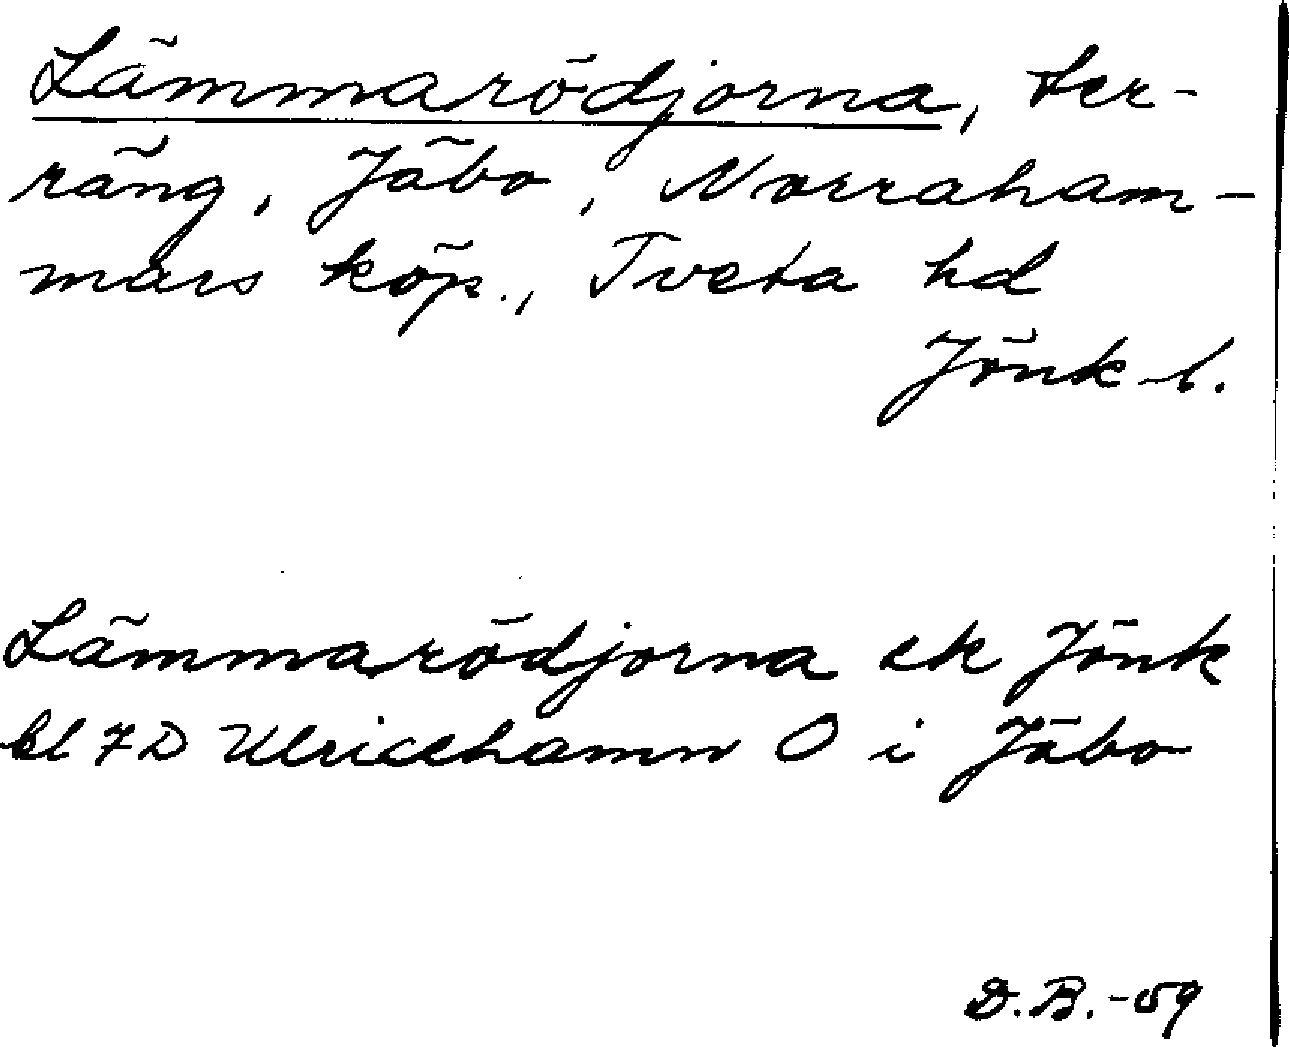 Lämmarödjorna, ter-
räng, Jäbo, Norraham-
mars köp., Tveta hd
Jönk l.
Lämmarödjorna ek Jönk
bl 7D Ulricehamn O i Jäbo
D.B.-59